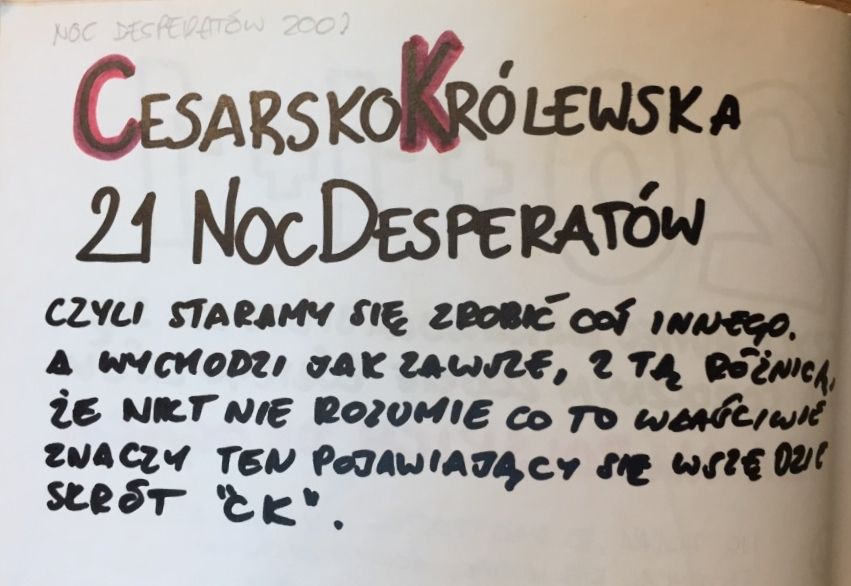 NOC DESPERATÓW 2002
CESARSKOKRÓLEWSKA
21 NOC DESPERATÓW
CZYLI STARAMY SIĘ ZROBIĆ COŚ INNEGO.
A WYCHODZI JAK ZAWSZE, Z TĄ RÓŻNICĄ,
ŻE NIKT NIE ROZUMIE CO TO WŁAŚCIWIE
ZNACZY TEN POJAWIAJĄCY SIĘ WSZĘDZIE
SKRÓT "CK".